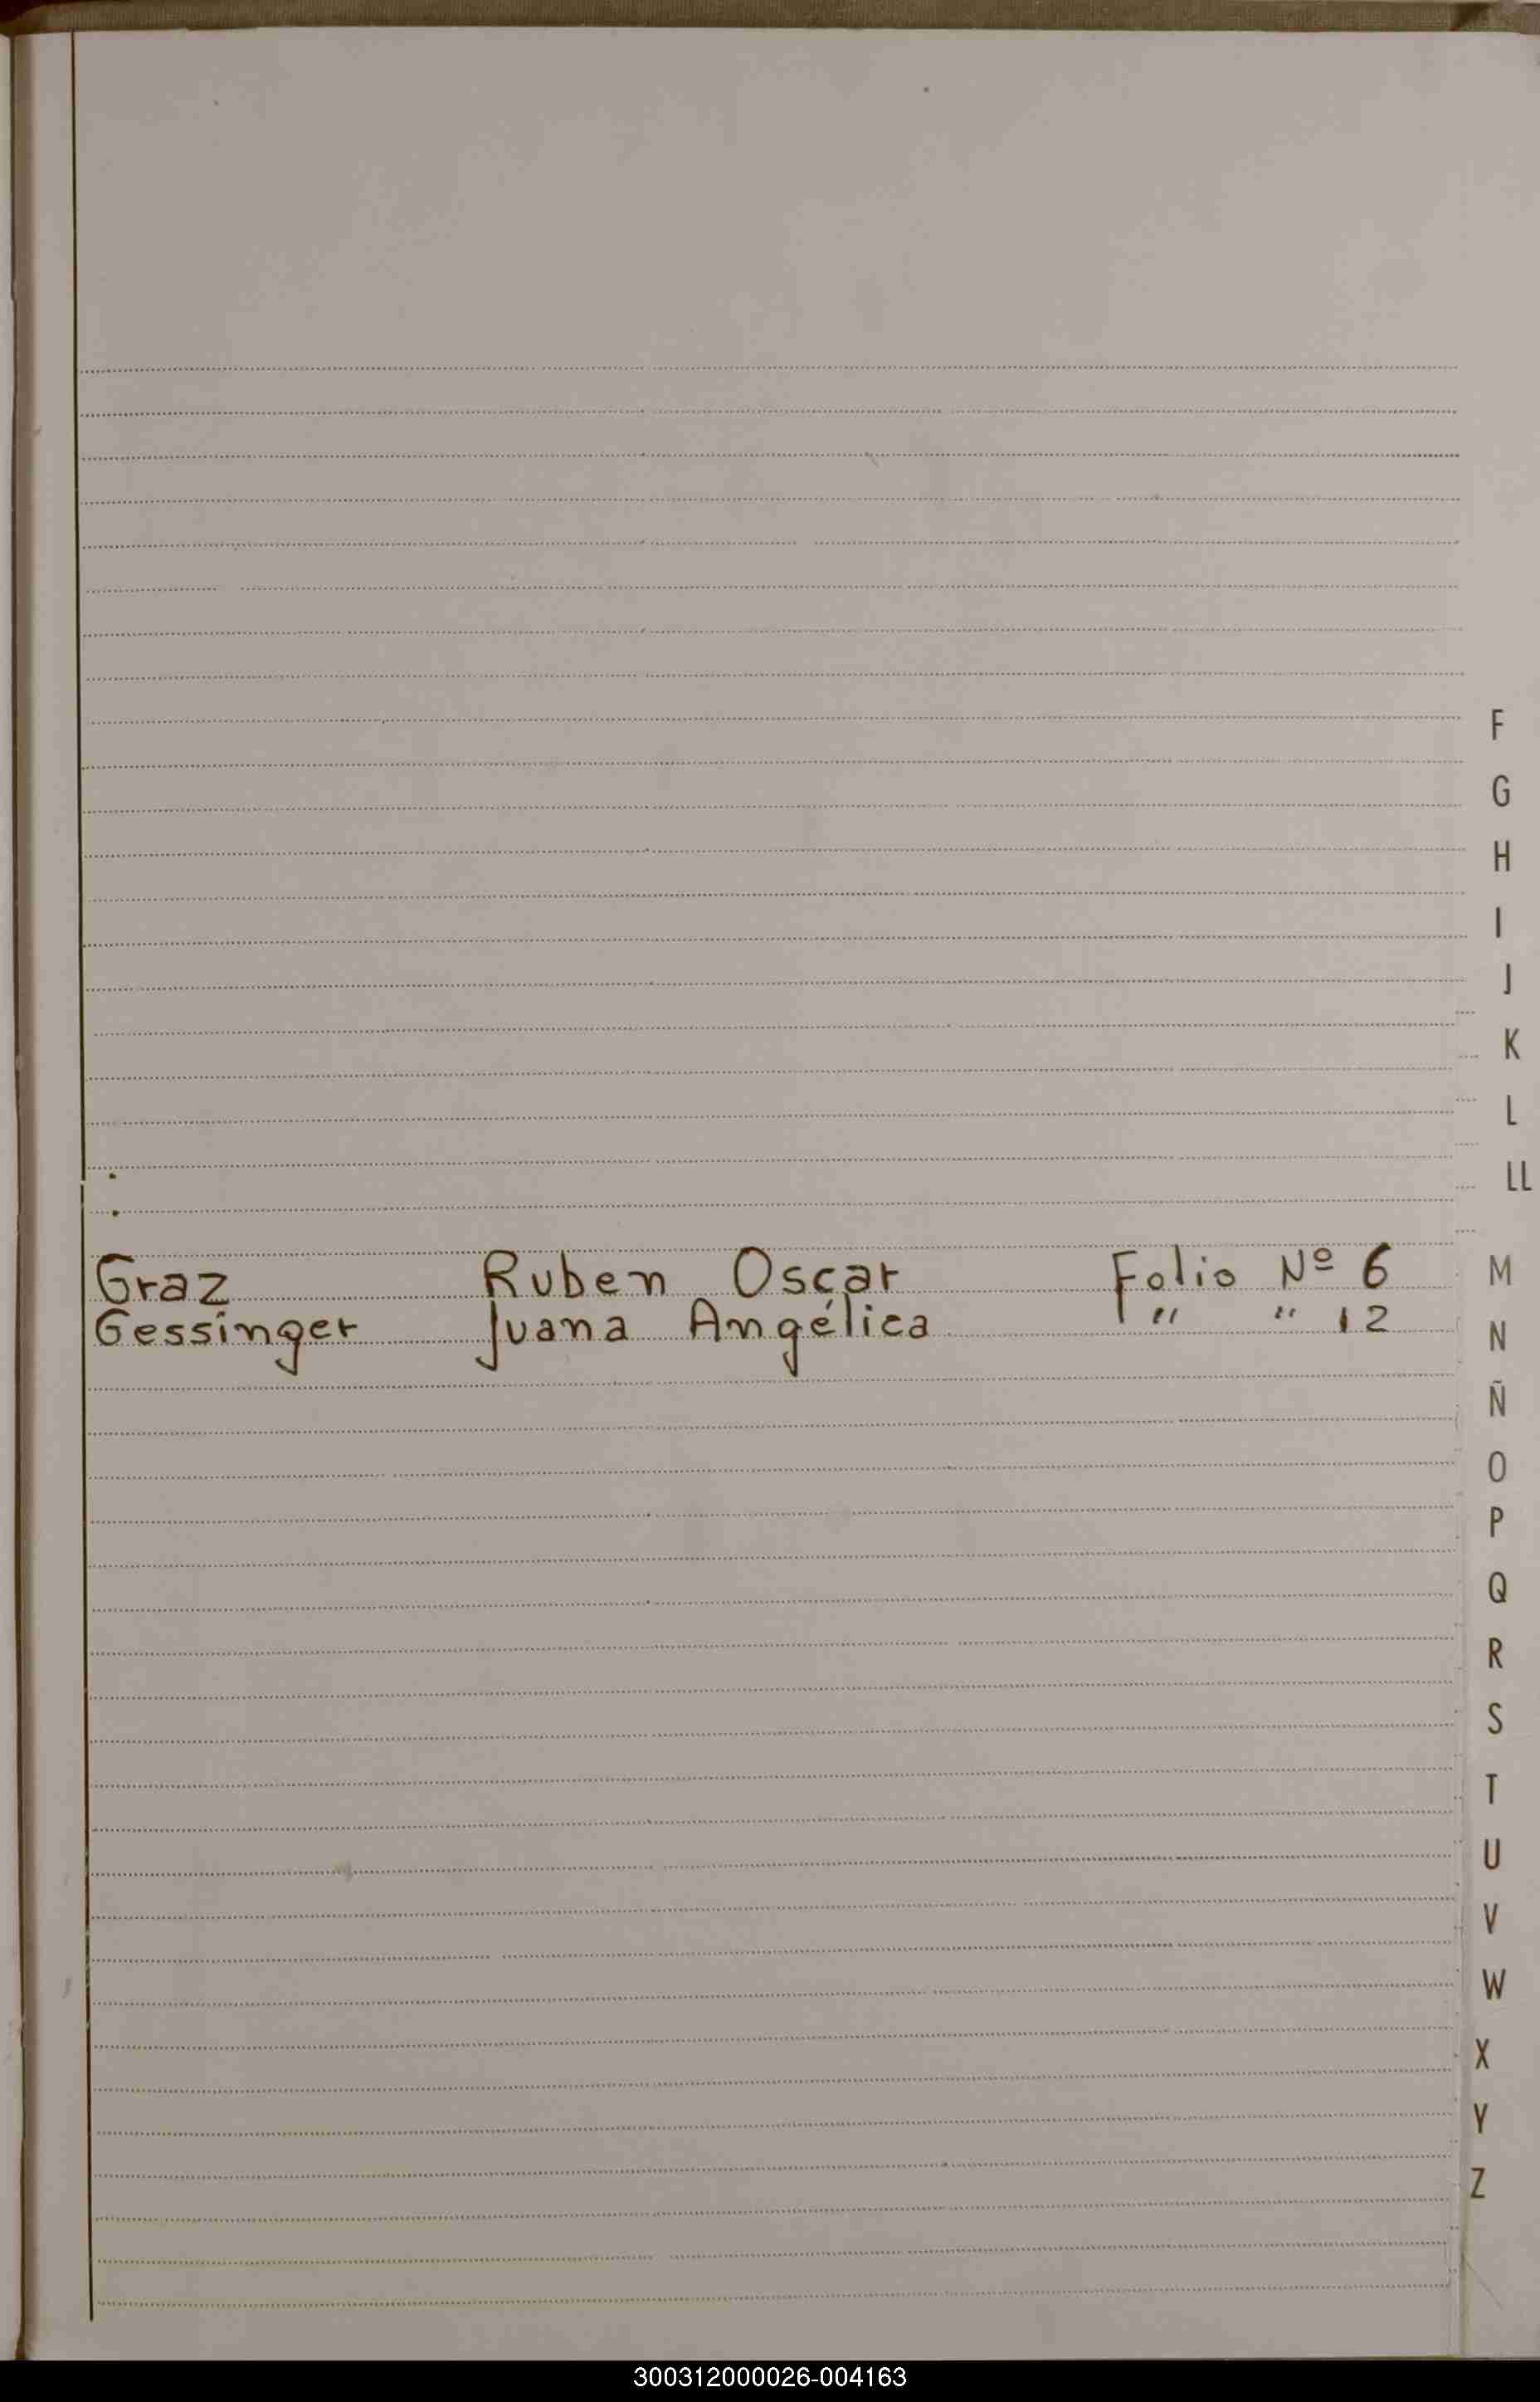 Graz Ruben Oscar Folio Nº 6
Gessinger Juana Angélica " " 12
F
G
H
I
J
K
L
LL
M
N
Ñ
O
P
Q
R
S
T
U
V
W
X
Y
Z
300312000026-004163